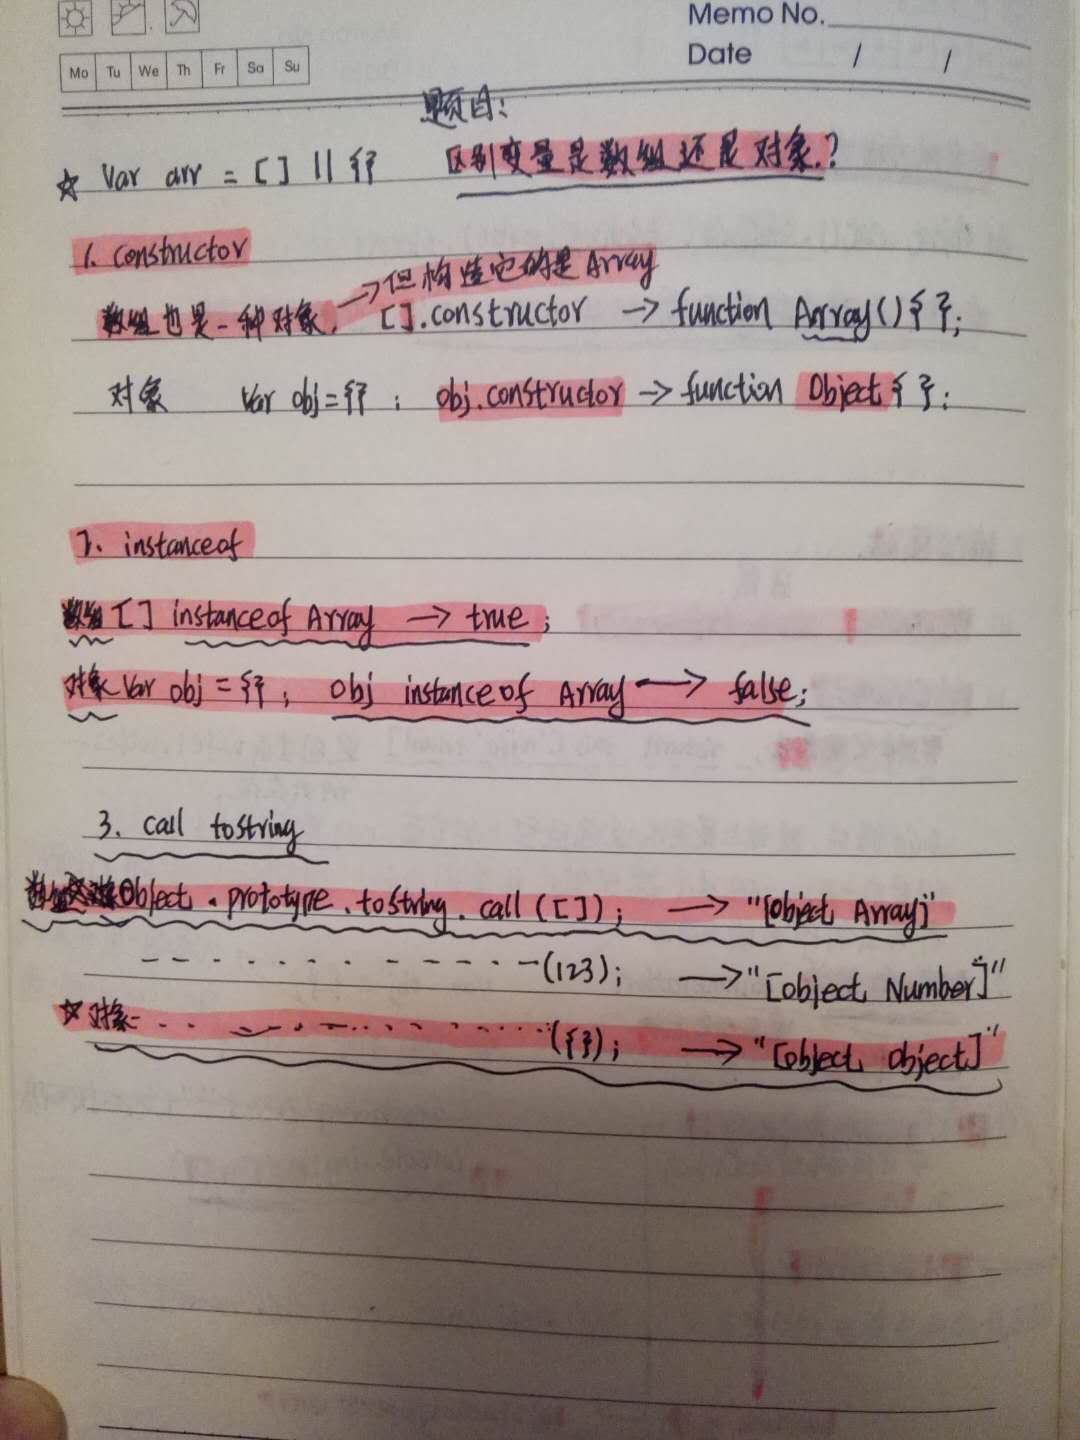 Memo No.
Date / /
Mo Tu We Th Fr Sa Su
题目:
☆ Var arr = [] || {} 区别变量是数组还是对象.?
1. constructor
→但构造它的是Array
数组也是一种对象. [].constructor → function Array(){};
对象 Var obj={}; obj.constructor → function Object{};
2. instanceof
数组 [] instanceof Array → true;
对象 Var obj = {}; obj instanceof Array → false;
3. call tostring
Object.prototype.tostring.call([]); → "[object Array]"
- - - · · · · - - - - (123); → "[object Number]"
☆对象- · · · · · · · · · · ({}); → "[object object]"